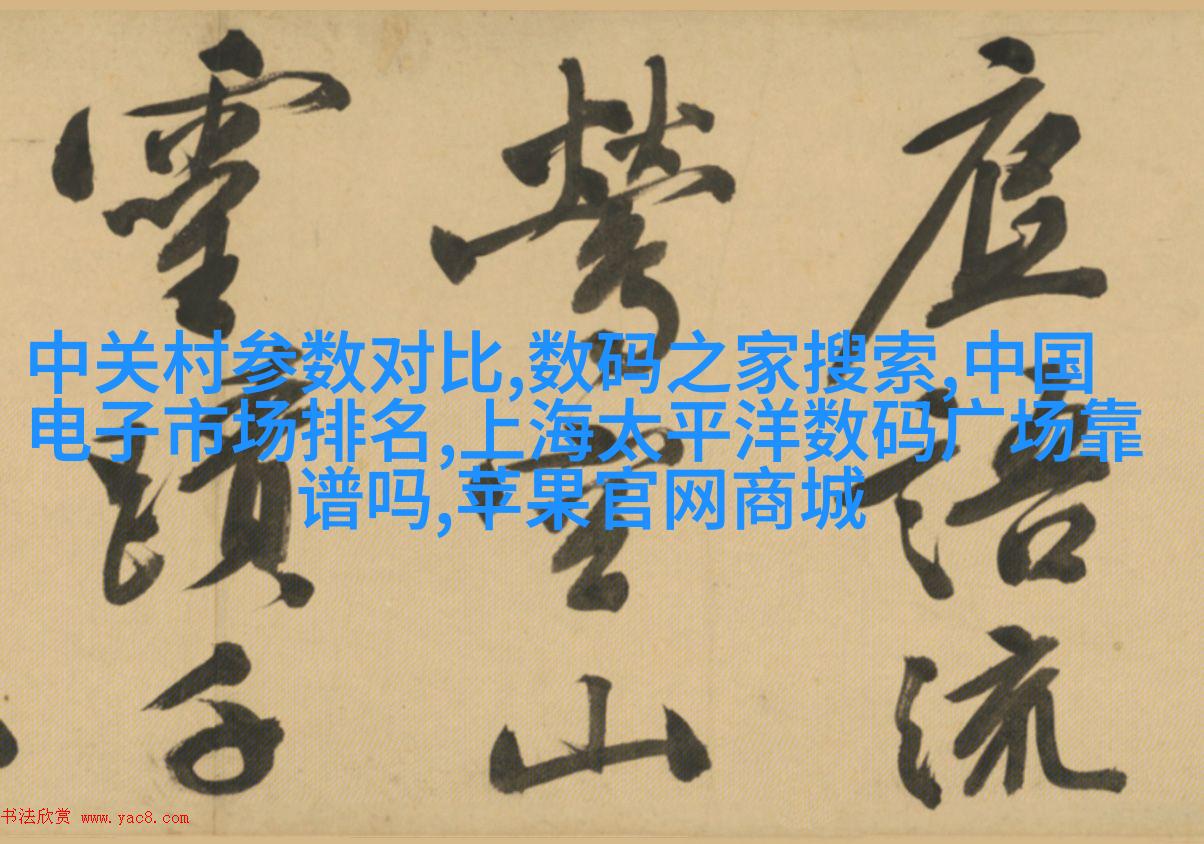 庭語流
鶯
山
蹟千
中关村参数对比,数码之家搜索,中国
电子市场排名,上海太平洋数码广场靠
谱吗,苹果官网商城
书法欣赏 www.yac8.com